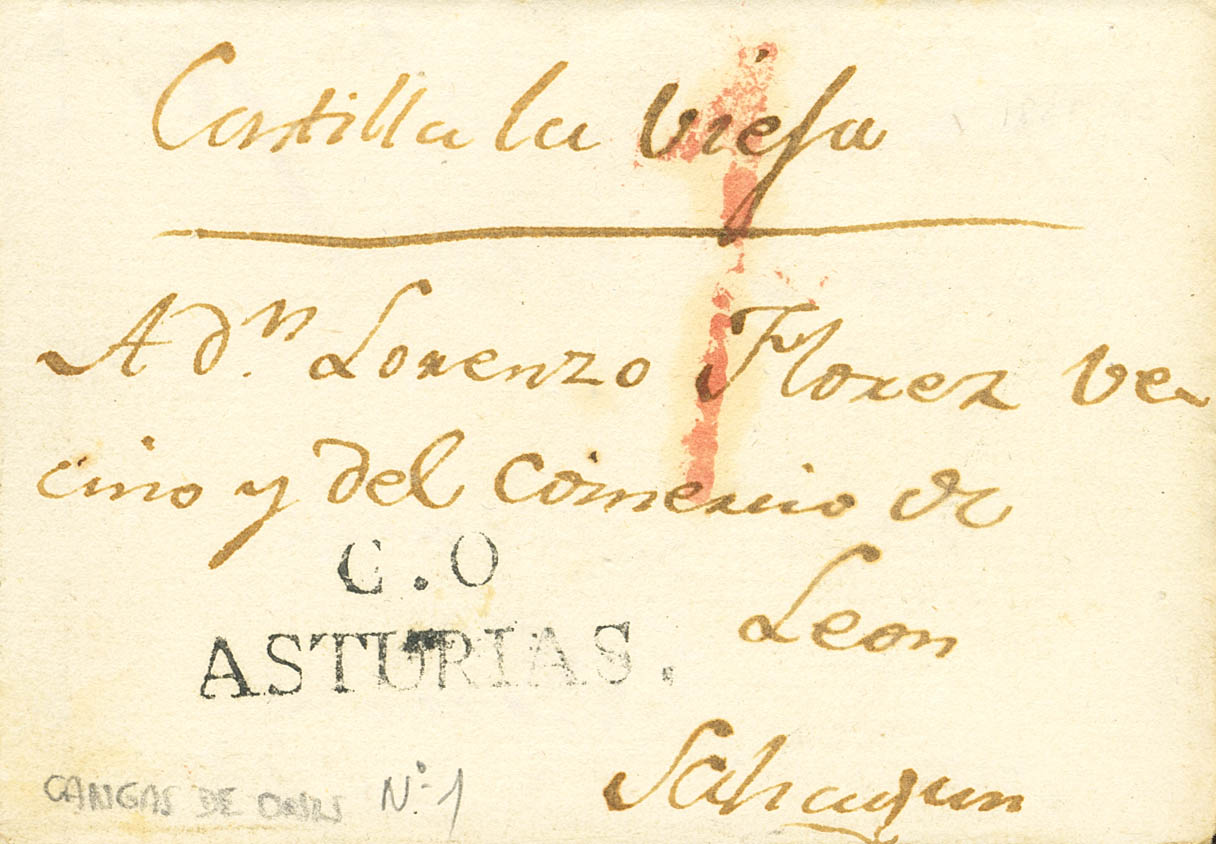 Castilla la Vieja
A dⁿ. Lorenzo Florez ve-
cino y del Comercio de
Leon
C.O
ASTURIAS.
Sahagun
CANGAS DE ONIS Nº 1